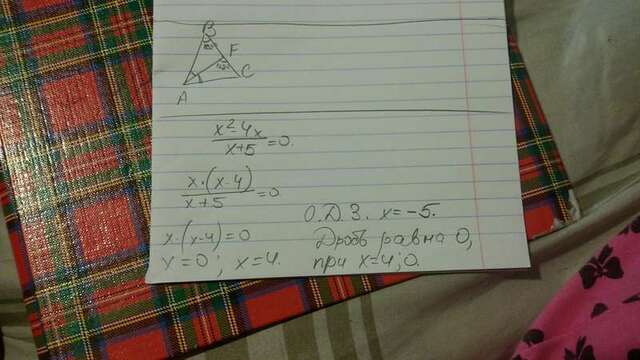 B
A
F
C
x²-4x / x+5 = 0.
x·(x-4) / x+5 = 0 О.Д.З. x=-5.
x·(x-4)=0 Дробь равна 0,
x=0; x=4 при x=4;0